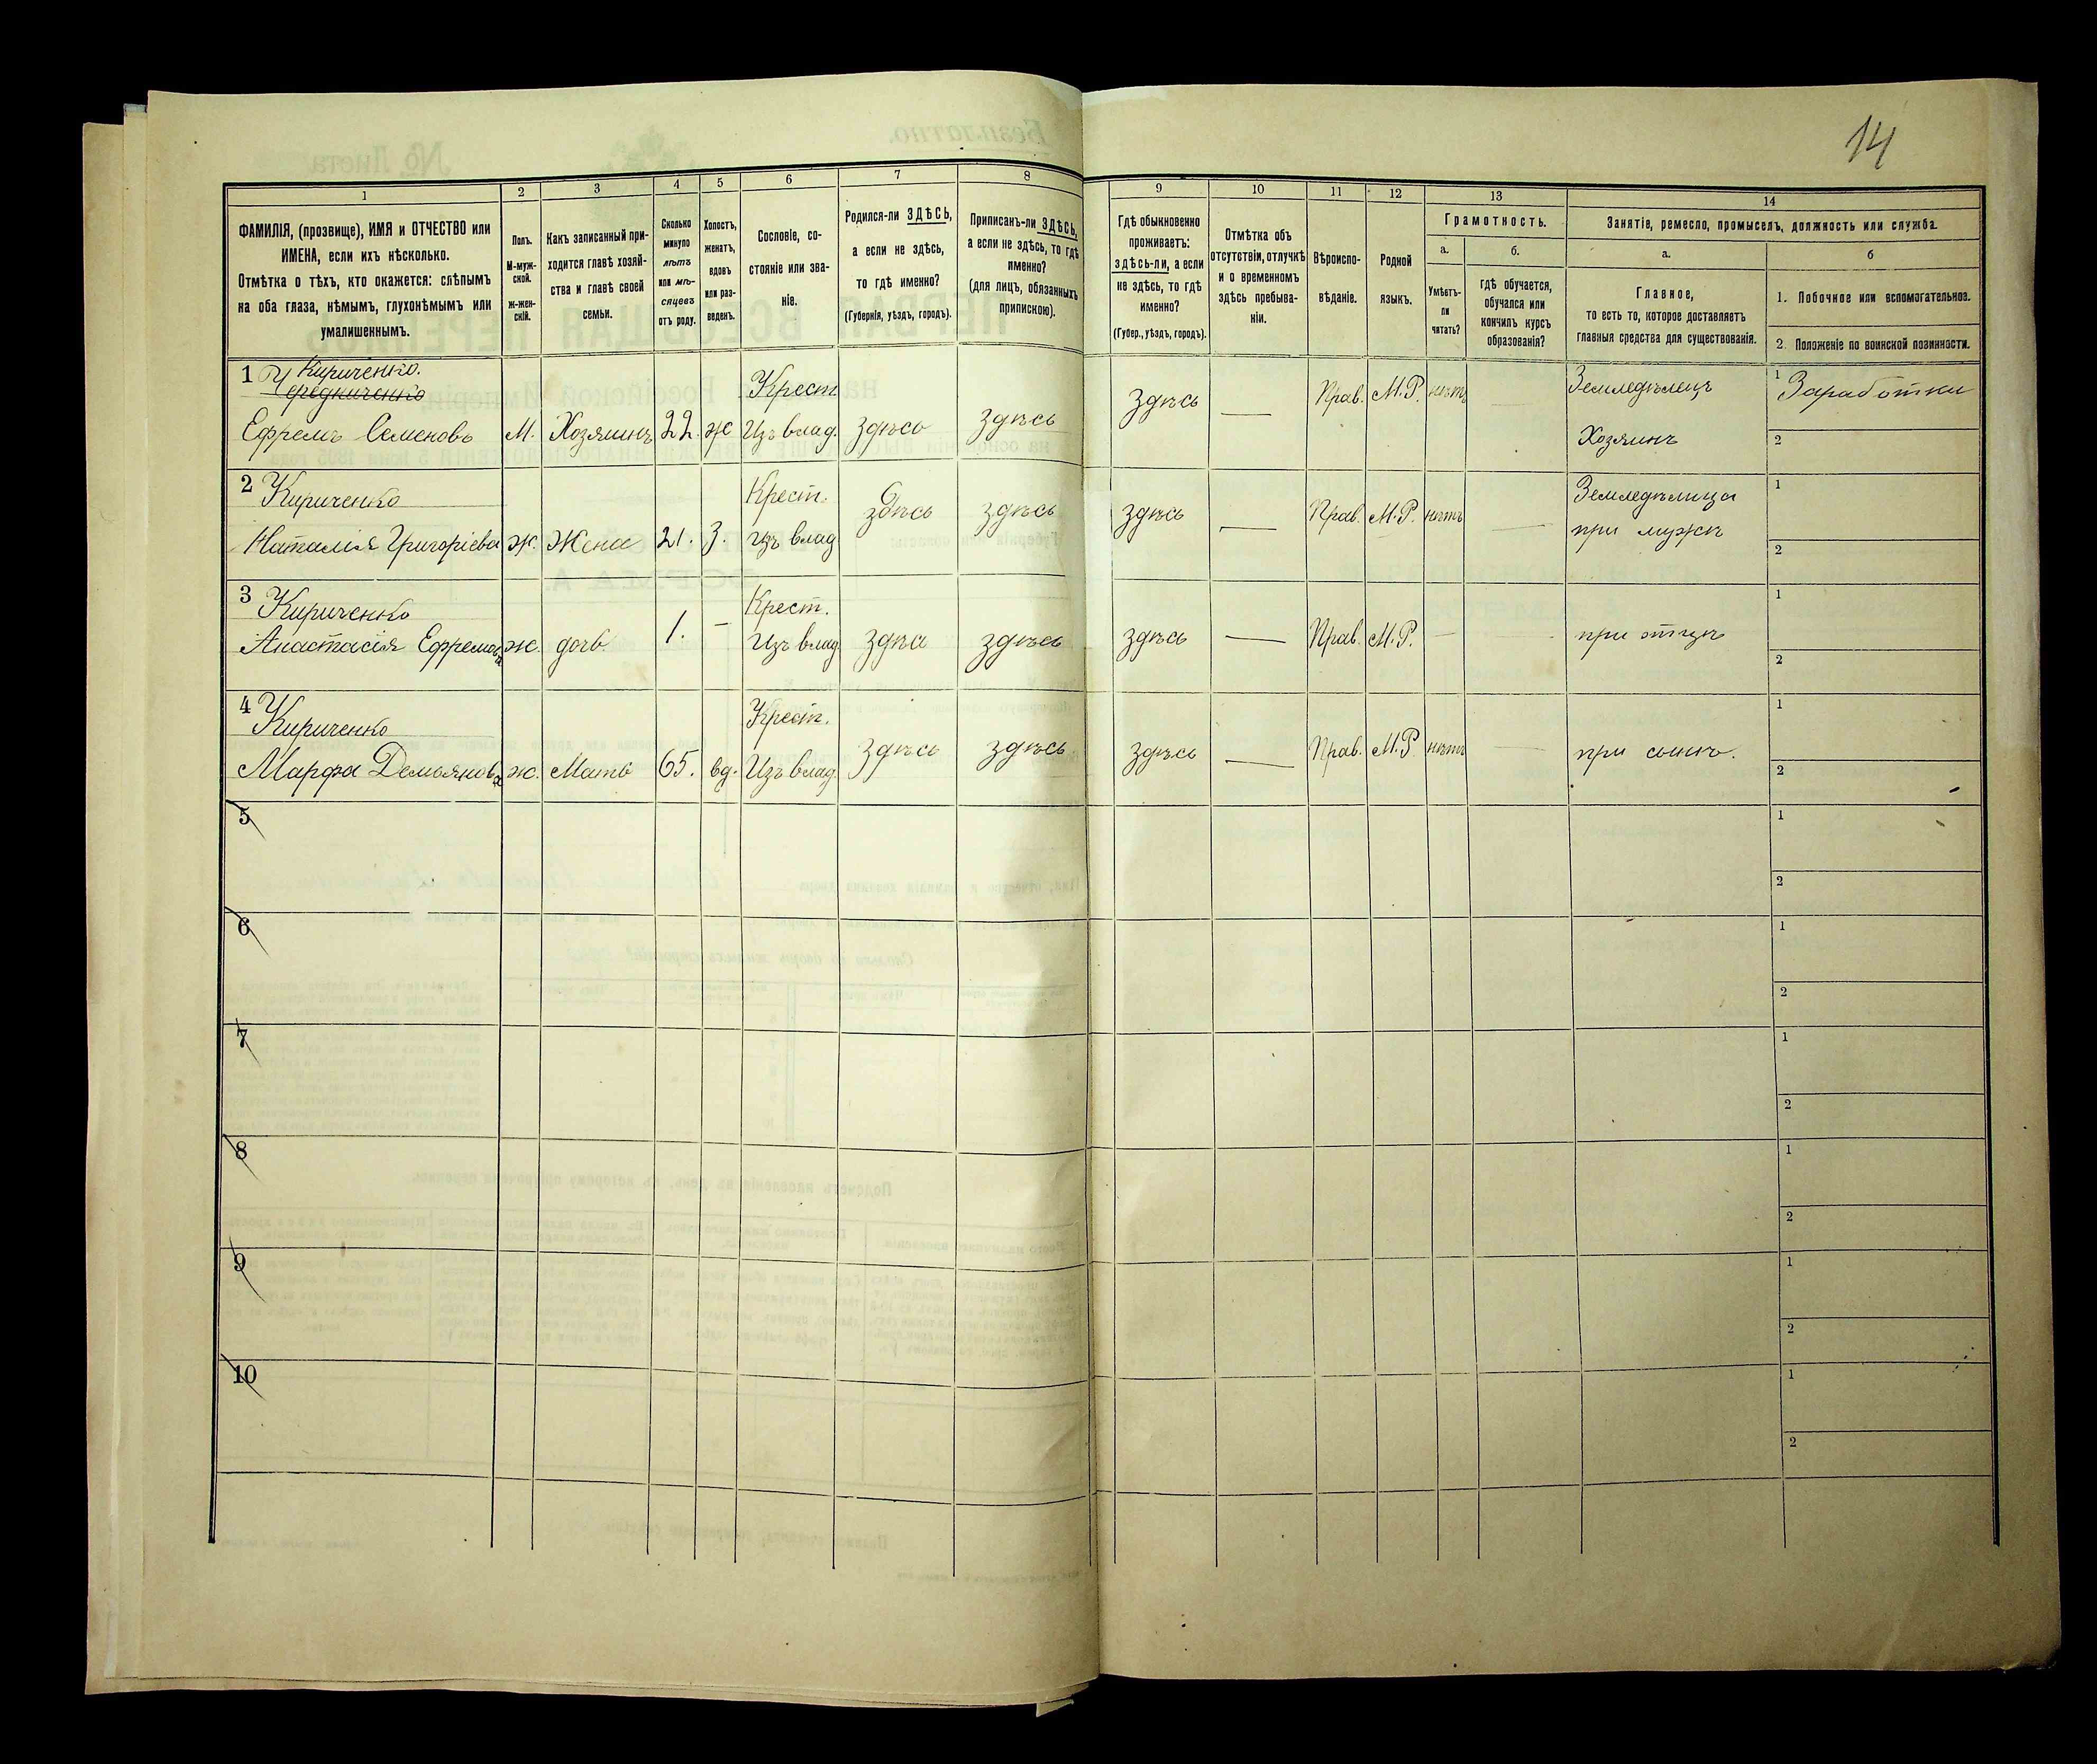 14
1 2 3 4 5 6 7 8 9 10 11 12 13 14
ФАМИЛІЯ, (прозвище), ИМЯ и ОТЧЕСТВО или
ИМЕНА, если ихъ нѣсколько.
Отмѣтка о тѣхъ, кто окажется: слѣпымъ
на оба глаза, нѣмымъ, глухонѣмымъ или
умалишеннымъ.
Полъ.
М-муж-
ской.
ж-жен-
скій.
Какъ записанный при-
ходится главѣ хозяй-
ства и главѣ своей
семьи.
Сколько
минуло
лѣтъ
или мѣ-
сяцевъ
отъ роду.
Холостъ,
женатъ,
вдовъ
или раз-
веденъ.
Сословіе, со-
стояніе или зва-
ніе.
Родился-ли ЗДѢСЬ,
а если не здѣсь,
то гдѣ именно?
(Губернія, уѣздъ, городъ).
Приписанъ-ли ЗДѢСЬ,
а если не здѣсь, то гдѣ
именно?
(для лицъ, обязанныхъ
припискою).
Гдѣ обыкновенно
проживаетъ:
здѣсь-ли, а если
не здѣсь, то гдѣ
именно?
(Губер., уѣздъ, городъ).
Отмѣтка объ
отсутствіи, отлучкѣ
и о временномъ
здѣсь пребыва-
ніи.
Вѣроиспо-
вѣданіе.
Родной
языкъ.
Грамотность.
а.
Умѣетъ-
ли
читать?
б.
гдѣ обучается,
обучался или
кончилъ курсъ
образованія?
Занятіе, ремесло, промыселъ, должность или служба.
а.
Главное,
то есть то, которое доставляетъ
главныя средства для существованія.
б
1. Побочное или вспомогательное.
2. Положеніе по воинской повинности.
1 Кириченко. Крест
Чередниченко Здѣсь — Прав. М.Р. нѣтъ Земледѣлецъ 1 Заработки
Ефремъ Семеновъ М. Хозяинъ 22. ж Изъ влад. Здѣсь Здѣсь Хозяинъ 2
2 Кириченко Крест. Здѣсь здѣсь здѣсь — Прав. М.Р. нѣтъ — Земледѣлица 1
Наталія Григоріева Ж. Жена 21. З. Изъ влад при мужѣ 2
3 Кириченко Крест. 1
Анастасія Ефремова ж. дочь 1. — Изъ влад здѣсь здѣсь здѣсь — Прав. М.Р. — при отцѣ 2
4 Кириченко Крест. 1
Марфа Демьянова ж. Мать 65. вд. Изъ влад. здѣсь здѣсь здѣсь — Прав. М.Р. нѣтъ — при сынѣ. 2
5 1
2
6 1
2
7 1
2
8 1
2
9 1
2
10 1
2